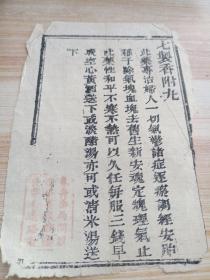 七製香附丸
此藥專治婦人一切氣鬱諸症逐瘀調經安胎
種子除氣塊血塊去舊生新安魂定魄理氣止
此藥性和平不寒不熱可以久任每服三錢早
晚空心黃酒送下或淡醋湯亦可或清米湯送
下